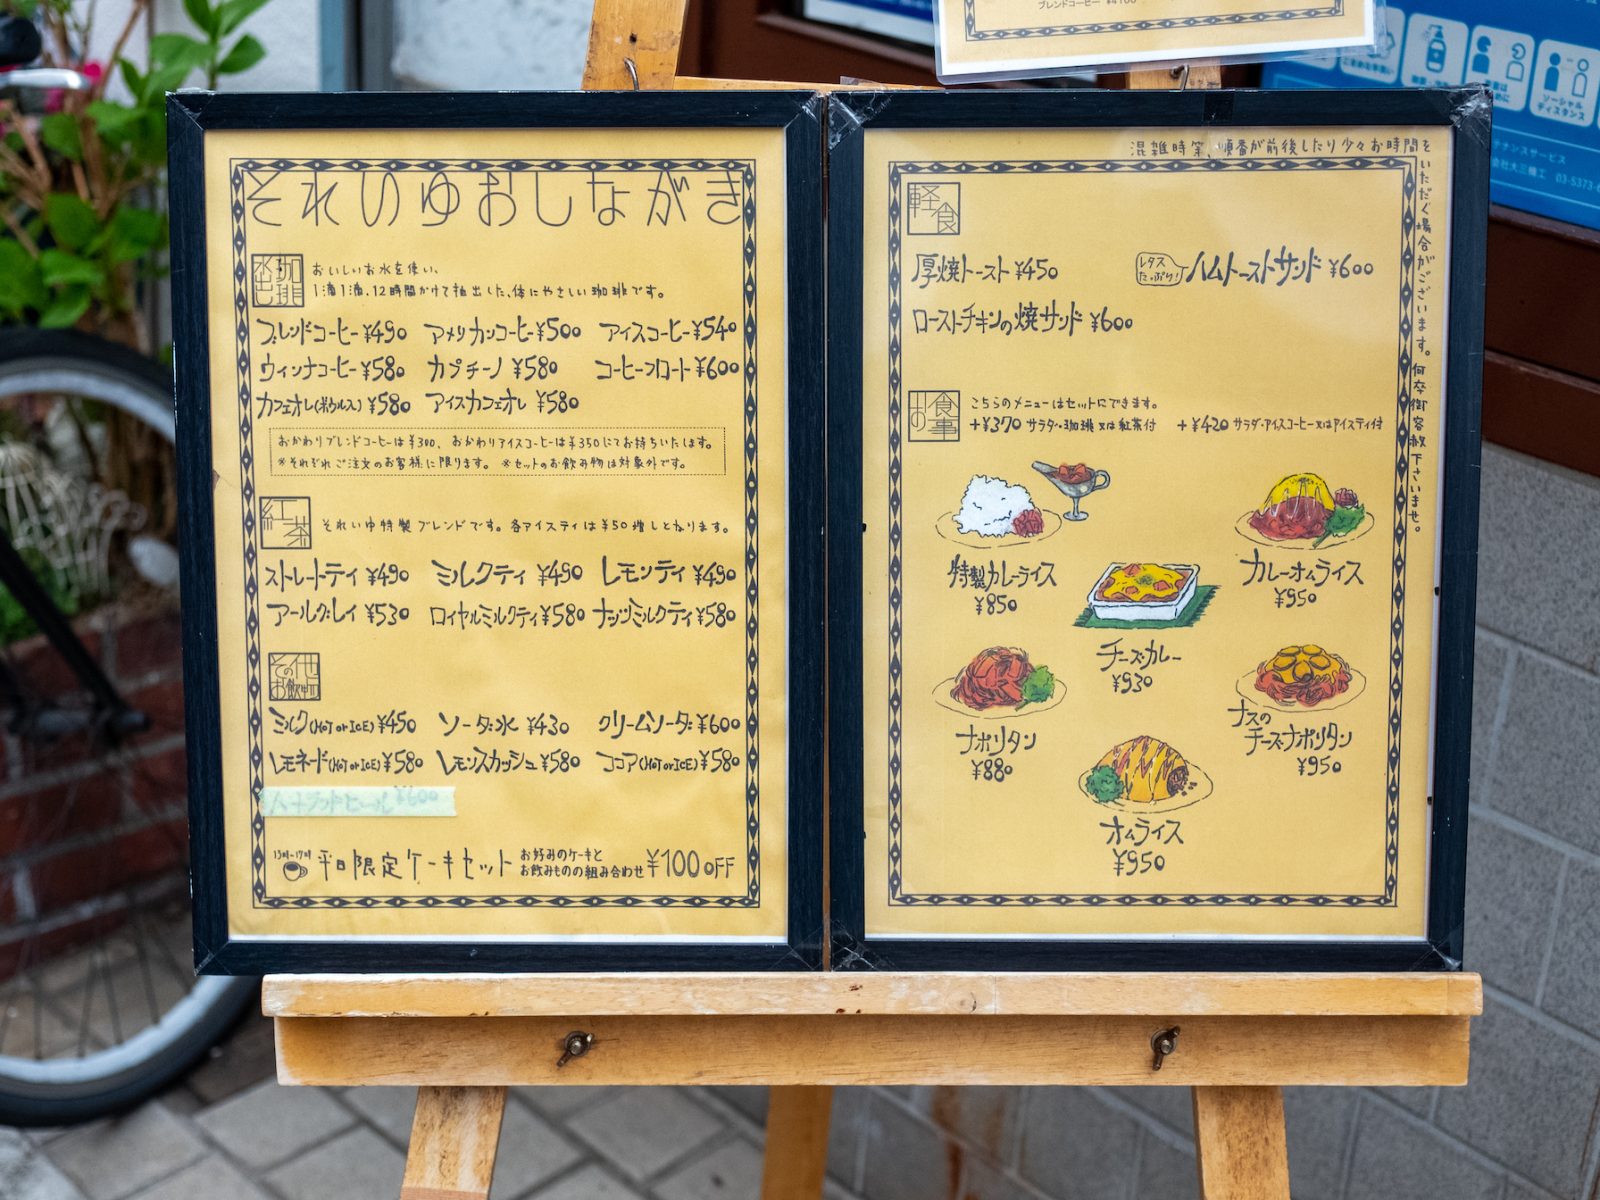 ブレンドコーヒー
それいゆおしながき
水出し珈琲
おいしいお水を使い、
1滴1滴、12時間かけて抽出した、体にやさしい珈琲です。
ブレンドコーヒー ¥490 アメリカンコーヒー ¥500 アイスコーヒー ¥540
ウィンナコーヒー ¥580 カプチーノ ¥580 コーヒーフロート ¥600
カフェオレ(ボウル入) ¥580 アイスカフェオレ ¥580
おかわりブレンドコーヒーは¥300、おかわりアイスコーヒーは¥350にてお持ちいたします。
※それぞれご注文のお客様に限ります。 ※セットのお飲み物は対象外です。
紅茶
それいゆ特製ブレンドです。各アイスティは¥50増しとなります。
ストレートティ ¥490 ミルクティ ¥490 レモンティ ¥490
アールグレイ ¥530 ロイヤルミルクティ ¥580 ナッツミルクティ ¥580
その他お飲物
ミルク(HOT or ICE) ¥450 ソーダ水 ¥430 クリームソーダ ¥600
レモネード(HOT or ICE) ¥580 レモンスカッシュ ¥580 ココア(HOT or ICE) ¥580
¥600
13時-17時 平日限定ケーキセット お好みのケーキと
お飲みものの組み合わせ ¥100 OFF
混雑時等、順番が前後したり少々お時間を
いただく場合がございます。何卒御容赦下さいませ。
軽食
厚焼トースト ¥450 レタスたっぷり! ハムトーストサンド ¥600
ローストチキンの焼サンド ¥600
お食事
こちらのメニューはセットにできます。
+¥370 サラダ・珈琲又は紅茶付 +¥420 サラダ・アイスコーヒー又はアイスティ付
特製カレーライス
¥850
カレーオムライス
¥950
チーズカレー
¥930
ナポリタン
¥880
ナスの
チーズナポリタン
¥950
オムライス
¥950
ソーシャル
ディスタンス
03-5373-6